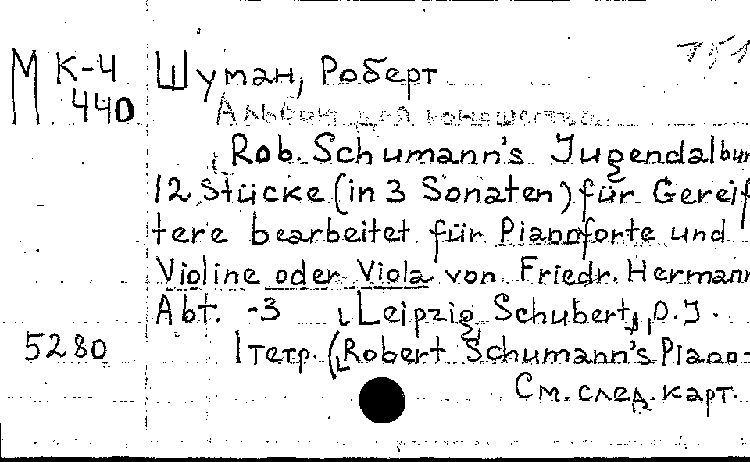 М К-4 Шуман, Роберт 751
440 Альбом для юношества.
Rob. Schumann's Jugendalbum
12 Stücke (in 3 Sonaten) für Gereif
tere bearbeitet für Pianoforte und
Violine oder Viola von Friedr. Hermann
Abt. -3 Leipzig Schubert, O.J.
5280 1 тетр. (Robert Schumann's Piano-
См. след. карт.